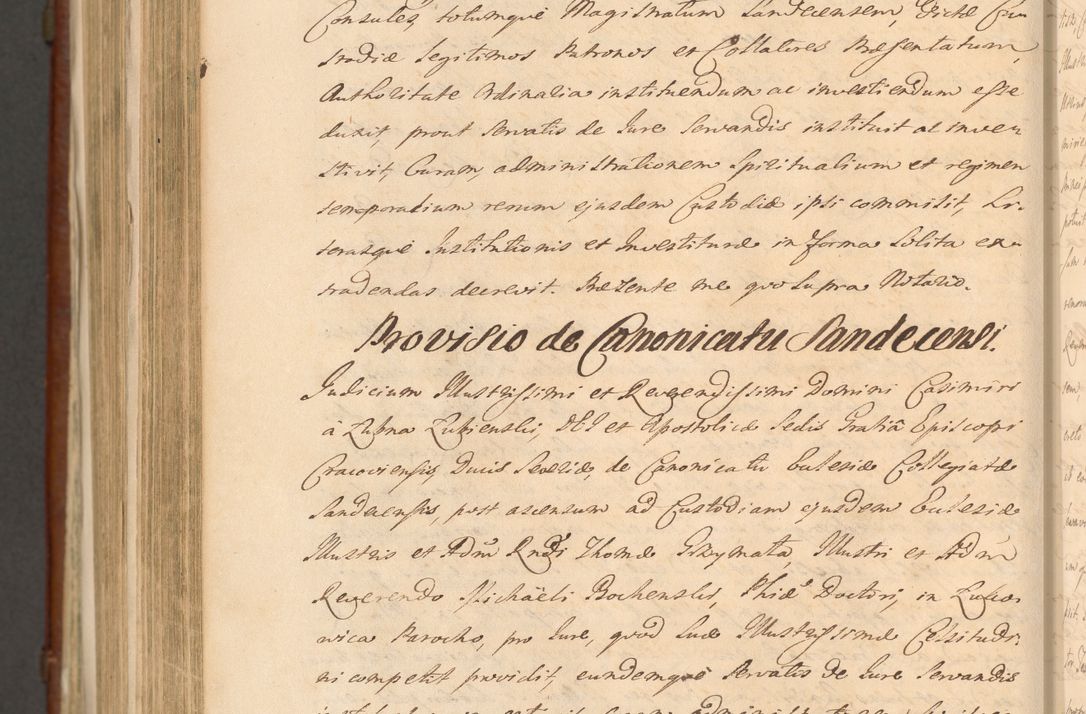 Consules, totumque Magistratum Sandecensem, Dictæ Cus
todiæ legitimos Patronos et Collatores Præsentatum,
Authoritate Ordinaria instituendum ac investiendum esse
duxit, prout servatis de Iure servandis instituit ac inves
tivit, Curam, administrationem Spiritualium et regimen
temporalium rerum ejusdem Custodiæ ipsi commisit, Li-
terasque Institutionis et Investituræ in forma solita ex-
tradendas decrevit. Præsente me quo supra Notario.
Provisio de Canonicatu Sandecensi.
Judicium Illustrissimi et Reverendissimi Domini Casimiri
à Łubna Łubienski, DEI et Apostolicæ Sedis Gratiâ Episcopi
Cracoviensis, Ducis Severiæ, de Canonicatu Ecclesiæ Collegiatæ
Sandecensis, post ascensum ad Custodiam ejusdem Ecclesiæ
Illustris et Adm̃ Rñdi Thomæ Grzymała, Illustri et Adm̃
Reverendo Michaëli Bochenski, Phiæ Doctori, in
Parocho, pro Iure, quod suæ Illustrissimæ Celsitudi-
ni competit providit, eundemque servatis de Iure servandis